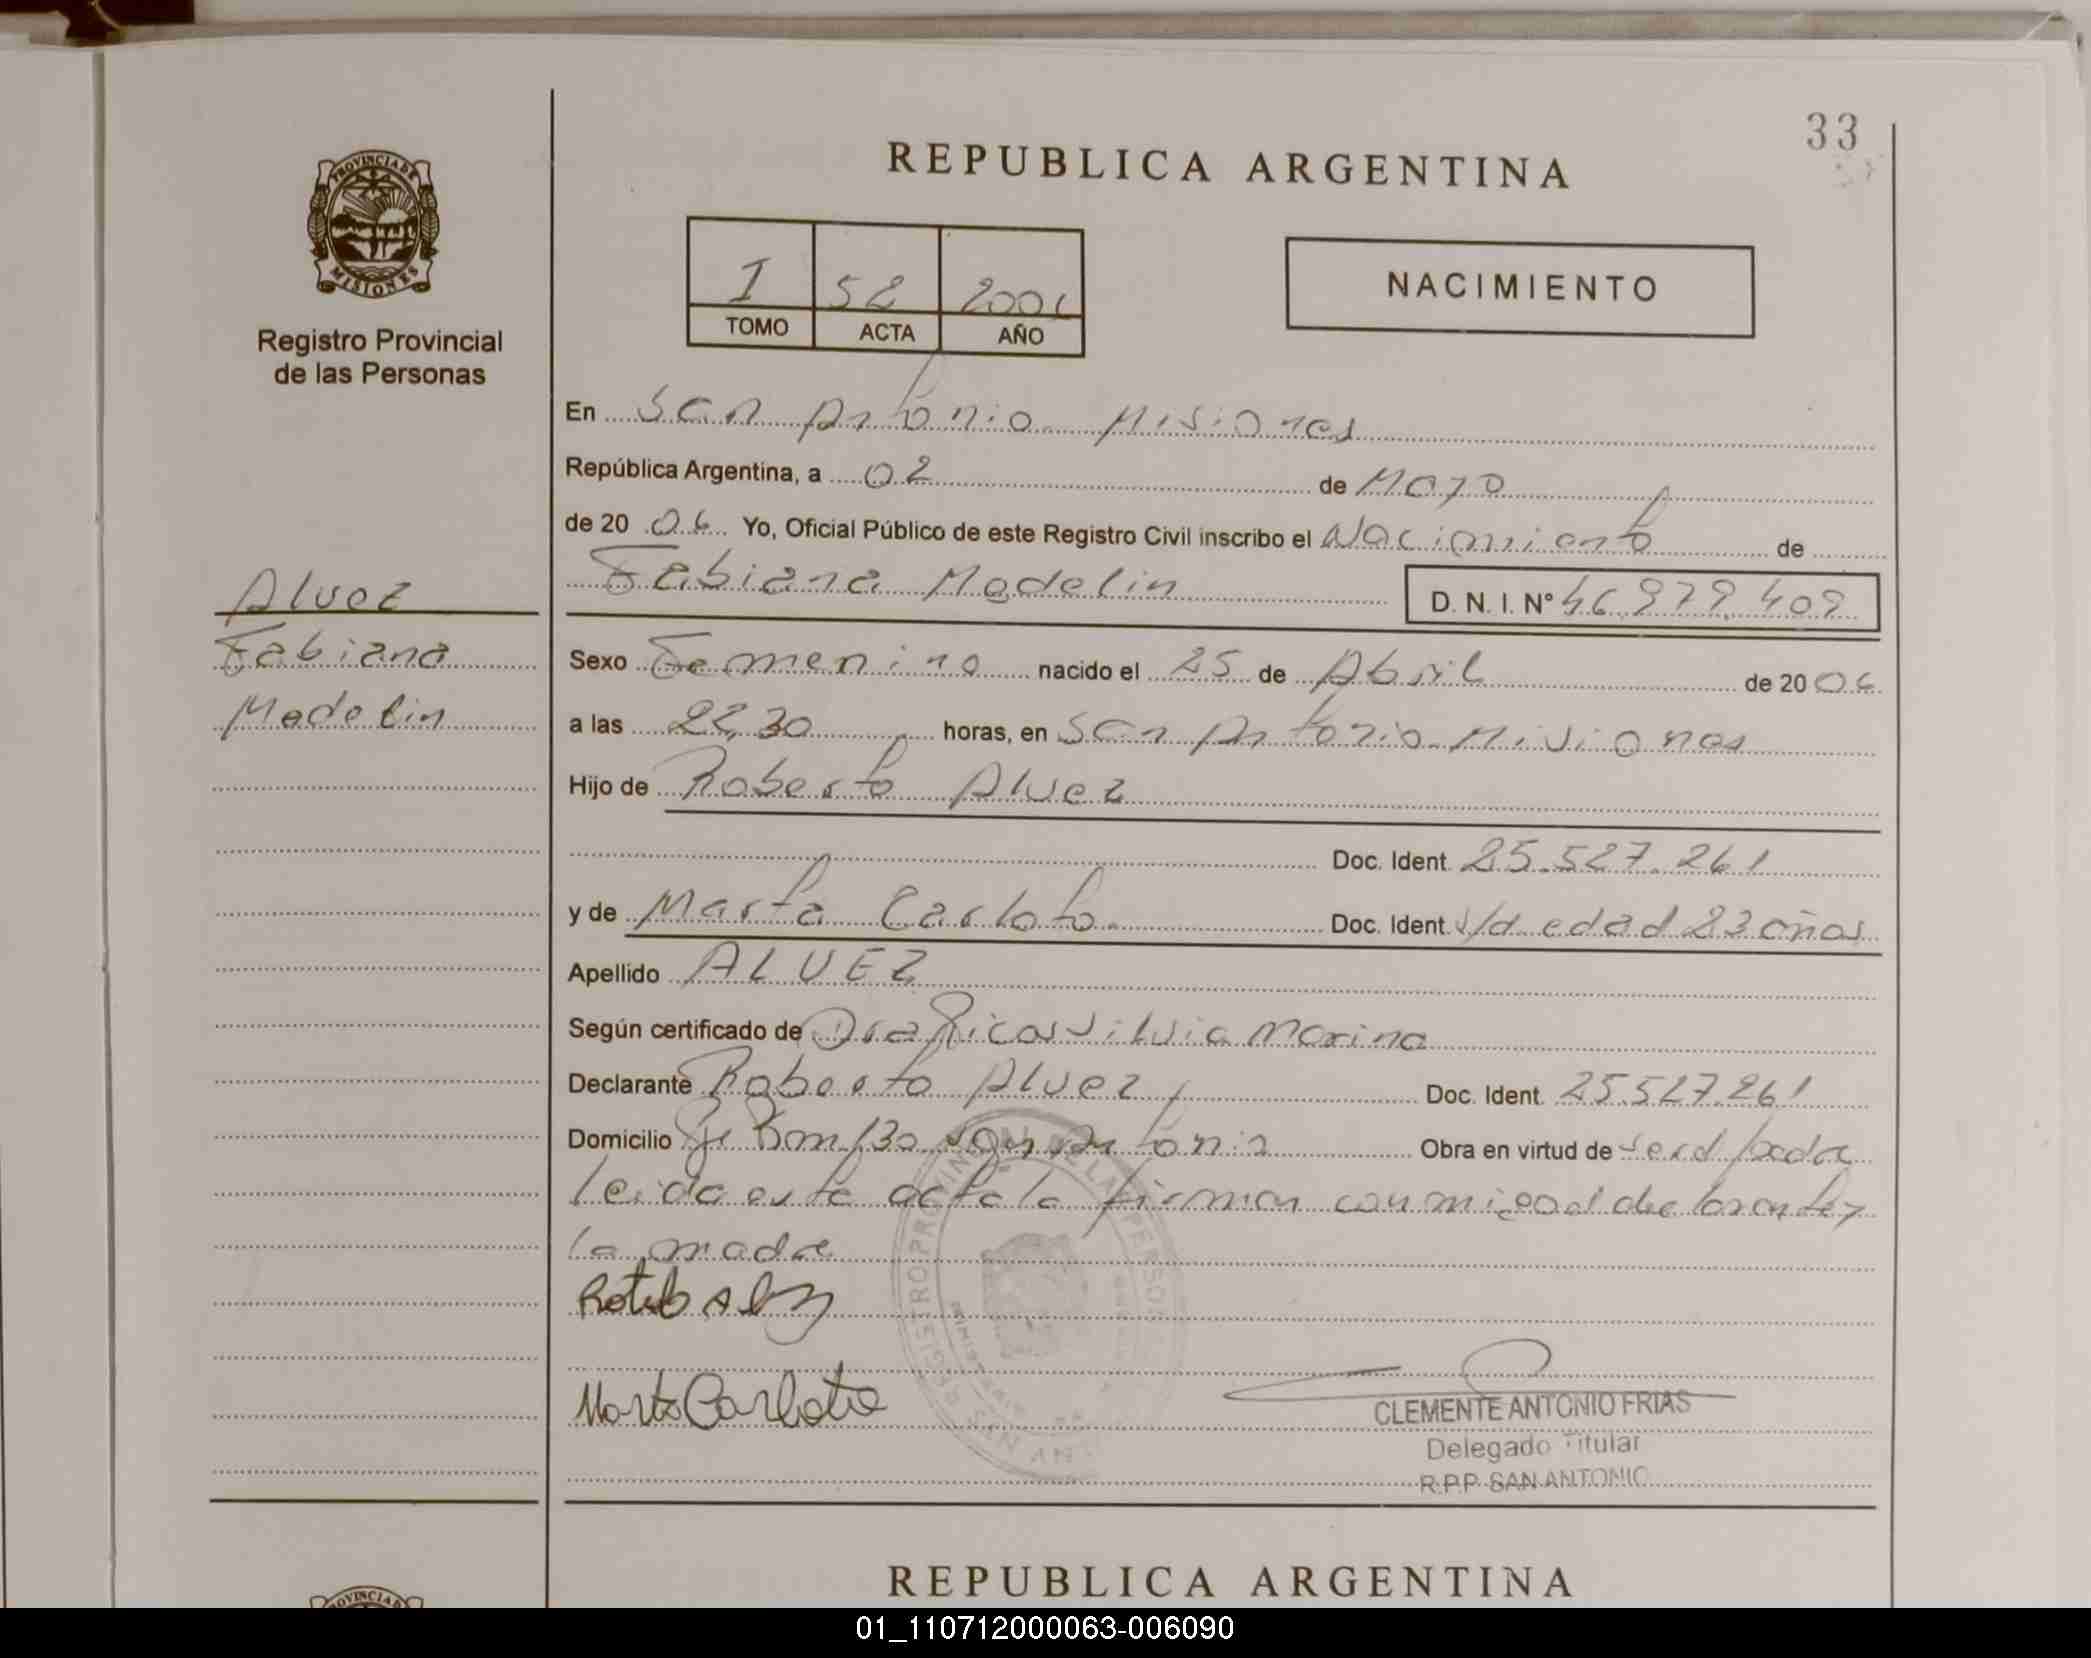 33
REPUBLICA ARGENTINA
PROVINCIA DE
MISIONES
Registro Provincial
de las Personas
I 52 2006
TOMO ACTA AÑO
NACIMIENTO
En San Antonio Misiones
República Argentina, a 02 de Mayo
de 20 06 Yo, Oficial Público de este Registro Civil inscribo el Nacimiento de
Fabiana Madelin D. N. I. Nº 46.979.409
Alvez
Fabiana
Madelin
Sexo Femenino nacido el 25 de Abril de 20 06
a las 22,30 horas, en San Antonio Misiones
Hijo de Roberto Alvez
Doc. Ident. 25.527.261
y de Marta Carloto Doc. Ident. s/d edad 23 años
Apellido ALVEZ
Según certificado de Dra Silvia Marina
Declarante Roberto Alvez Doc. Ident. 25.527.261
Domicilio San Antonio Obra en virtud de ser el padre
leida esta acta la firman conmigo el declarante y
la madre
Marta Carloto
CLEMENTE ANTONIO FRIAS
Delegado Titular
R.P.P. SAN ANTONIO
REPUBLICA ARGENTINA
01_110712000063-006090